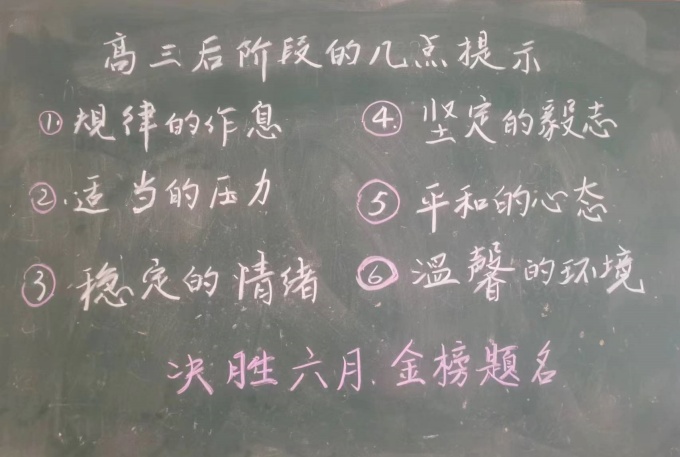 高三后阶段的几点提示
①.规律的作息
②.适当的压力
③稳定的情绪
④.坚定的毅志
⑤平和的心态
⑥温馨的环境
决胜六月.金榜题名